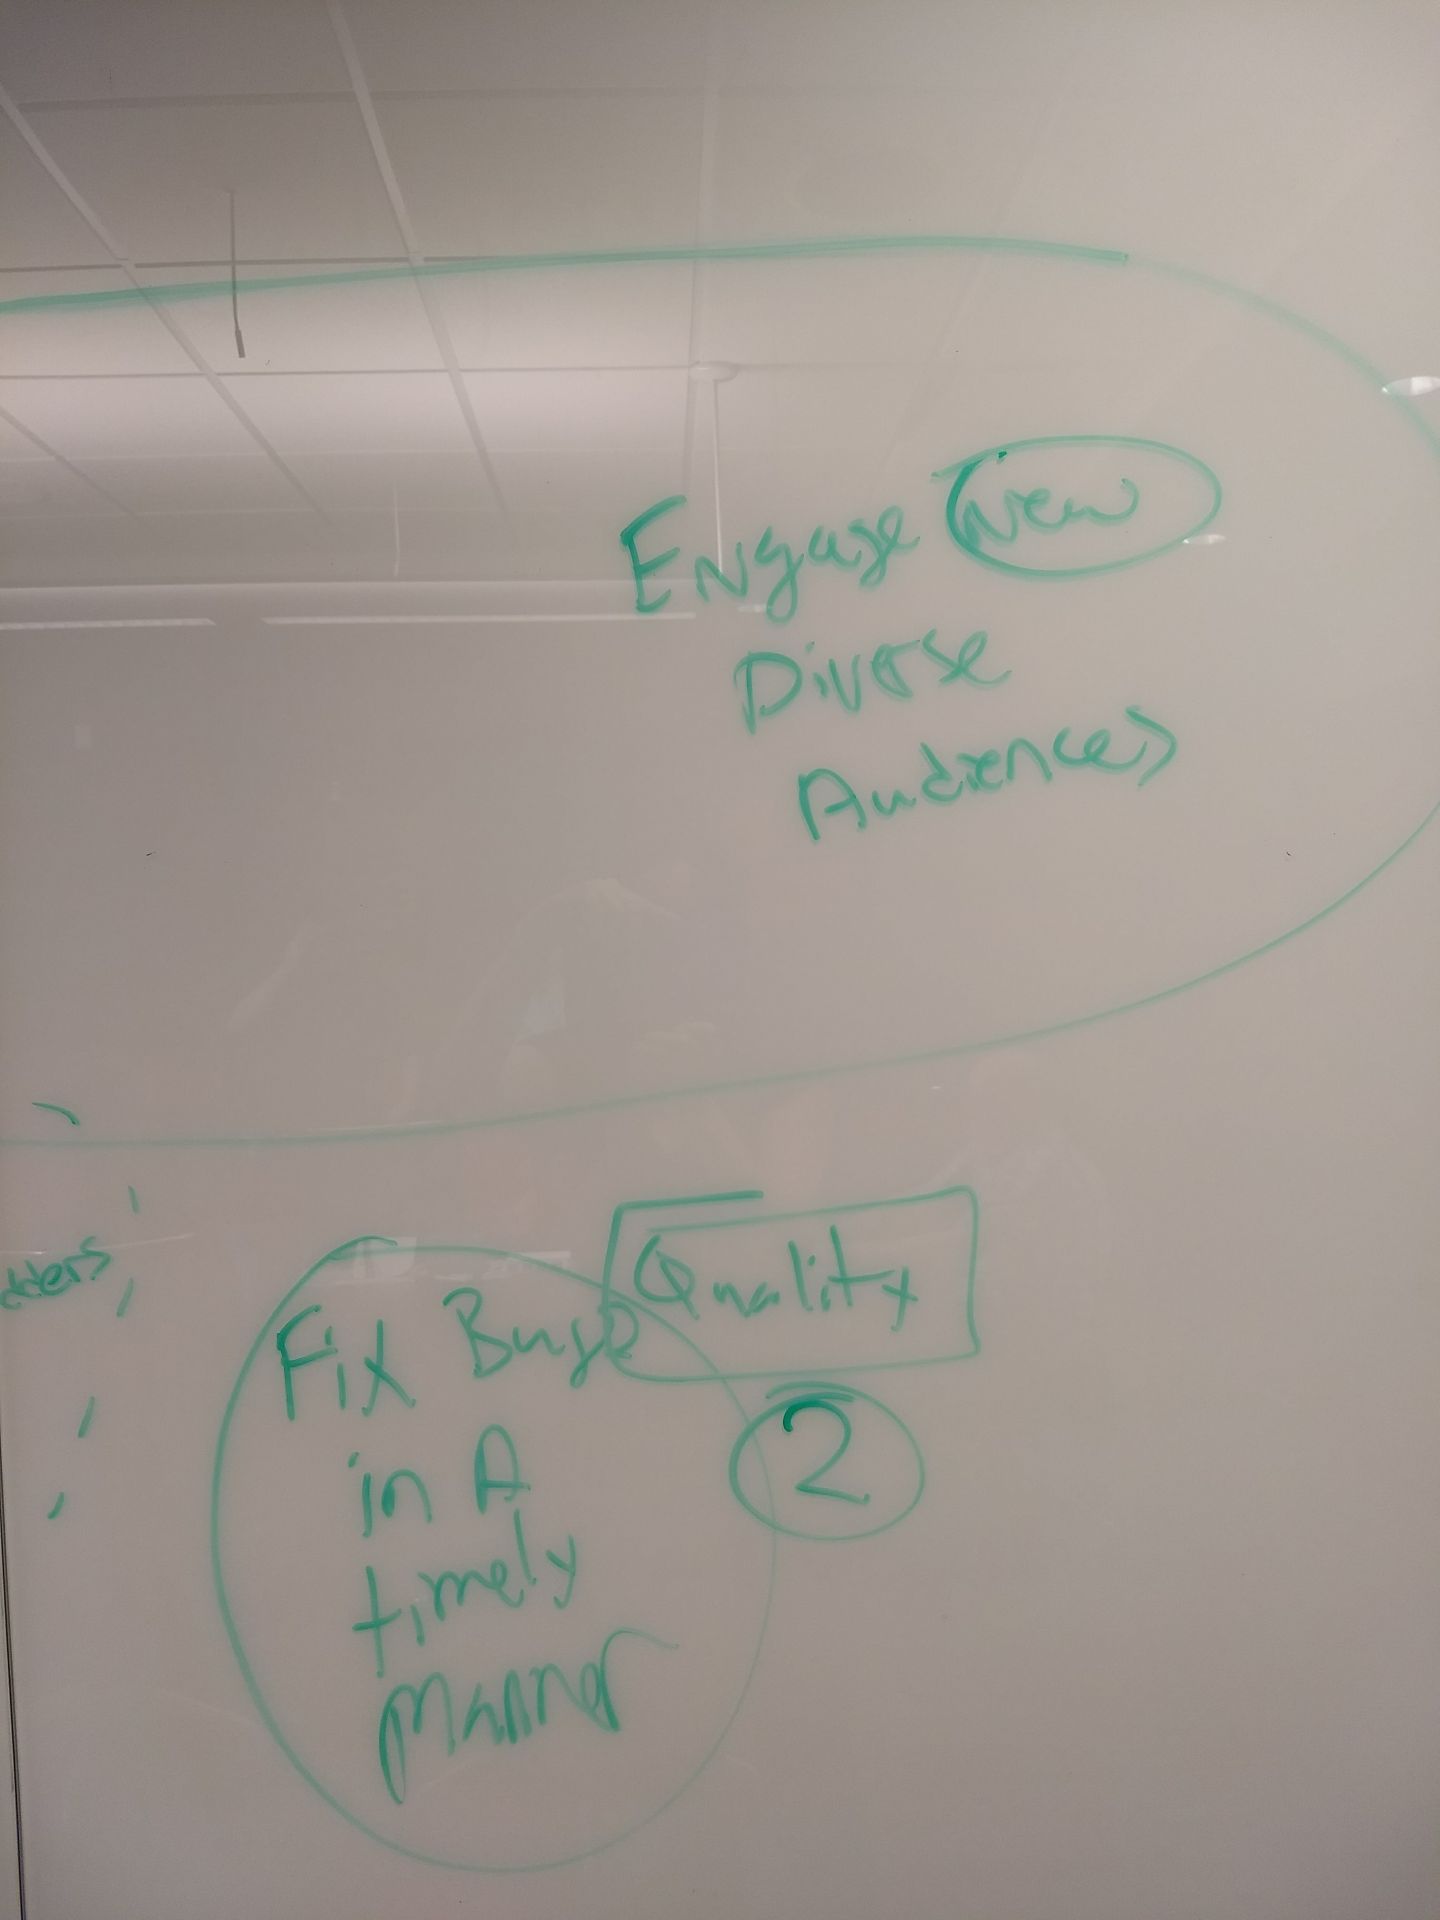 Engage New
Diverse
Audiences
Quality
Fix Bugs
in A
timely
Manner
2